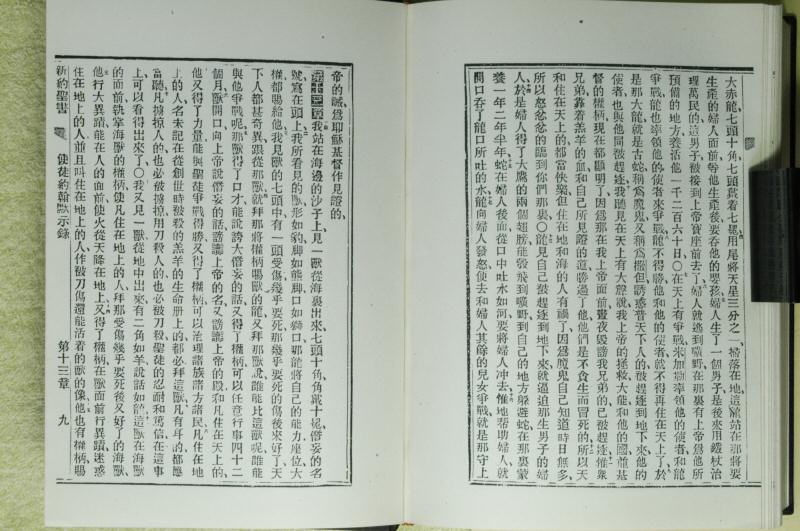 大赤龍七頭十角七頭戴着七冕用尾將天星三分之一掃落在地這龍站在那將要
生產的婦人面前等他生產後要吞他的嬰孩婦人生了一個男子是後來用鐵杖治
理萬民的這男子被接到上帝寶座前去了婦人就逃到曠野在那裏有上帝爲他所
預備的地方養活他一千二百六十日〇在天上有爭戰米加勒率領他的使者和龍
爭戰龍也率領他的使者來爭戰龍不得勝他和他的使者就不得再住在天上了於
是那大龍就是古蛇稱爲魔鬼又稱爲撒但誘惑普天下人的被趕逐到地下來他的
使者也與他同被趕逐我聽見在天上有大聲說我上帝的拯救大能和他的國並基
督的權柄現在都顯明了因爲那在我上帝面前晝夜毀謗我兄弟的已被趕逐衆
兄弟靠着羔羊的血和自己所見證的道勝過了他他們是不貪生而冒死的所以天
和住在天上的都當快樂但住在地和海的人有禍了因爲魔鬼自己知道時日無多
所以怒忿忿的臨到你們那裏〇龍見自己被趕逐到地下來就逼迫那生男子的婦
人於是婦人得了大鷹的兩個翅膀能彀飛到曠野到自己的地方躱避蛇在那裏蒙
養一年二年半年蛇在婦人後面從口中吐水如河要將婦人冲去惟地幇助婦人就
開口吞了龍口所吐的水龍向婦人發怒便去和婦人其餘的兒女爭戰就是那守上
帝的誡爲耶穌基督作見證的
第十三章我站在海邊的沙子上見一獸從海裏出來七頭十角角戴十冕僭妄的名
號寫在頭上我所看見的獸形如豹脚如熊脚口如獅口那龍將自己的能力座位大
權都賜給他我見獸的七頭中有一頭受傷幾乎要死那幾乎要死的傷後來好了天
下人都甚奇異跟從那獸就拜那將權柄賜獸的龍又拜那獸說誰能比這獸呢誰能
與他爭戰呢那獸得了口才能說誇大僭妄的話又得了權柄可以任意行事四十二
個月獸開口向上帝說僭妄的話謗讟上帝的名又謗讟上帝的殿和凡住在天上的
他又得了力量能與聖徒爭戰得勝又得了權柄可以治理諸族諸方諸民凡住在地
上的人名未記在從創世時被殺的羔羊的生命册上的都必拜這獸凡有耳的都應
當聽凡擄掠人的也必被擄掠用刀殺人的也必被刀殺聖徒的忍耐和篤信在這事
上可以看得出來了〇我又見一獸從地中出來有二角如羊說話如龍這獸在海獸
的面前執掌海獸的權柄使凡住在地上的人拜那受傷幾乎要死後又好了的海獸
他行大異蹟能在人的面前使火從天降在地上又得了權柄在獸面前行異蹟迷惑
住在地上的人並且叫住在地上的人作被刀傷還能活着的獸的像他也有權柄賜
新約聖書 使徒約翰默示錄 第十三章 九